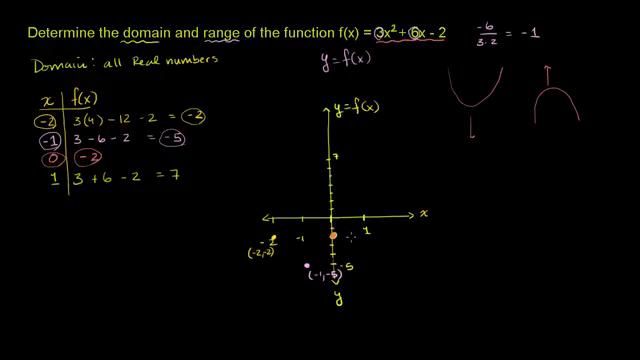 Determine the domain and range of the function f(x) = 3x² + 6x - 2
-6
3·2
= -1
Domain: all Real numbers
y = f(x)
x f(x)
-2 3(4) - 12 - 2 = -2
-1 3 - 6 - 2 = -5
0 -2
1 3 + 6 - 2 = 7
y = f(x)
7
x
-2 -1 1
(-2,-2)
-5
(-1,-5)
y